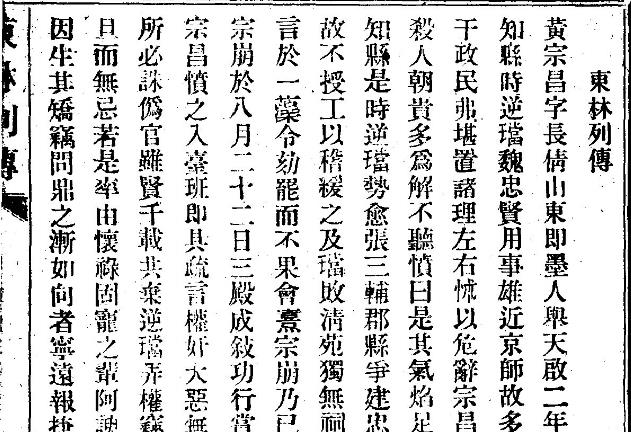 東林列傳
黃宗昌字長倩山東即墨人舉天啟二年
知縣時逆璫魏忠賢用事雄近京師故多
干政民弗堪置諸理左右怵以危辭宗昌
殺人朝貴多為解不聽憤曰是其氣焰足
知縣是時逆璫勢愈張三輔郡縣爭建忠
故不授工以稽緩之及璫敗清苑獨無祠
言於一藻令劾罷而不果會熹宗崩乃已
宗崩於八月二十二日三殿成敍功行賞
宗昌憤之入臺班即具疏言權奸大惡無
所必誅偽官雖賢千載共棄逆璫弄權竊
且而無忌若是率由懷祿固寵之輩阿諛
因生其矯竊問鼎之漸如向者寧遠報捷
東林列傳